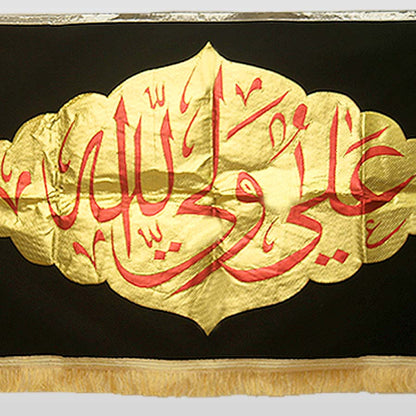 علي ولي الله